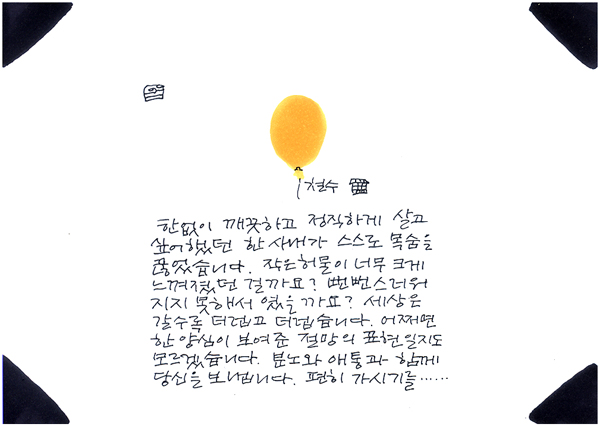 철수
한없이 깨끗하고 정직하게 살고
싶어했던 한 사내가 스스로 목숨을
끊었습니다. 작은 허물이 너무 크게
느껴졌던 걸까요? 뻔뻔스러워
지지 못해서 였을까요? 세상은
갈수록 더럽고 더럽습니다. 어쩌면
한 양심이 보여준 절망의 표현일지도
모르겠습니다. 분노와 애통과 함께
당신을 보냅니다. 편히 가시기를……